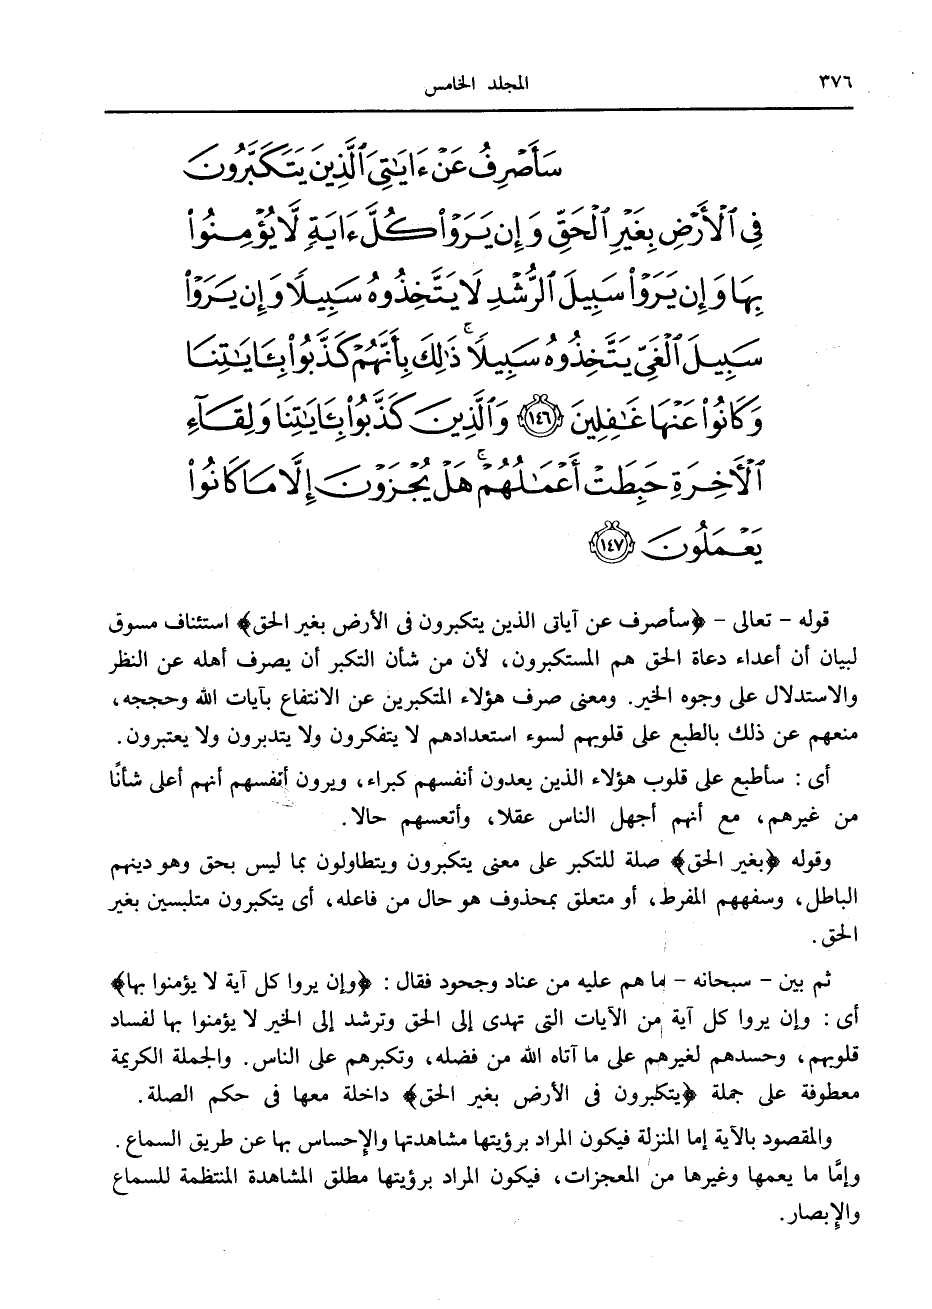 ٣٧٦
المجلد الخامس
سَأَصْرِفُ عَنْ ءَايَٰتِىَ ٱلَّذِينَ يَتَكَبَّرُونَ
فِى ٱلْأَرْضِ بِغَيْرِ ٱلْحَقِّ وَإِن يَرَوْا۟ كُلَّ ءَايَةٍ لَّا يُؤْمِنُوا۟
بِهَا وَإِن يَرَوْا۟ سَبِيلَ ٱلرُّشْدِ لَا يَتَّخِذُوهُ سَبِيلًا وَإِن يَرَوْا۟
سَبِيلَ ٱلْغَىِّ يَتَّخِذُوهُ سَبِيلًا ۚ ذَٰلِكَ بِأَنَّهُمْ كَذَّبُوا۟ بِـَٔايَٰتِنَا
وَكَانُوا۟ عَنْهَا غَٰفِلِينَ ﴿١٤٦﴾ وَٱلَّذِينَ كَذَّبُوا۟ بِـَٔايَٰتِنَا وَلِقَآءِ
ٱلْأَخِرَةِ حَبِطَتْ أَعْمَٰلُهُمْ ۚ هَلْ يُجْزَوْنَ إِلَّا مَا كَانُوا۟
يَعْمَلُونَ ﴿١٤٧﴾
قوله - تعالى - ﴿سأصرف عن آياتى الذين يتكبرون فى الأرض بغير الحق﴾ استئناف مسوق
لبيان أن أعداء دعاة الحق هم المستكبرون، لأن من شأن التكبر أن يصرف أهله عن النظر
والاستدلال على وجوه الخير. ومعنى صرف هؤلاء المتكبرين عن الانتفاع بآيات الله وحججه،
منعهم عن ذلك بالطبع على قلوبهم لسوء استعدادهم لا يتفكرون ولا يتدبرون ولا يعتبرون.
أى : سأطبع على قلوب هؤلاء الذين يعدون أنفسهم كبراء، ويرون أنفسهم أنهم أعلى شأنًا
من غيرهم، مع أنهم أجهل الناس عقلا، وأتعسهم حالا.
وقوله ﴿بغير الحق﴾ صلة للتكبر على معنى يتكبرون ويتطاولون بما ليس بحق وهو دينهم
الباطل، وسفههم المفرط، أو متعلق بمحذوف هو حال من فاعله، أى يتكبرون متلبسين بغير
الحق.
ثم بين - سبحانه - ما هم عليه من عناد وجحود فقال : ﴿وإن يروا كل آية لا يؤمنوا بها﴾
أى : وإن يروا كل آية من الآيات التى تهدى إلى الحق وترشد إلى الخير لا يؤمنوا بها لفساد
قلوبهم، وحسدهم لغيرهم على ما آتاه الله من فضله، وتكبرهم على الناس. والجملة الكريمة
معطوفة على جملة ﴿يتكبرون فى الأرض بغير الحق﴾ داخلة معها فى حكم الصلة.
والمقصود بالآية إما المنزلة فيكون المراد برؤيتها مشاهدتها والإحساس بها عن طريق السماع.
وإمَّا ما يعمها وغيرها من المعجزات، فيكون المراد برؤيتها مطلق المشاهدة المنتظمة للسماع
والإبصار.